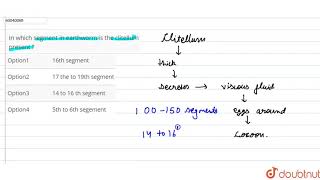 In which segment in earthworm is the clitellum
present?
Option1 16th segment
Option2 17 the to 19th segment
Option3 14 to 16 th segment
Option4 5th to 6th segement
Clitellum
↓
thick
↓
secretes → viscous fluid
↓
100-150 segments eggs around
↓
14 to 16 Cocoon.
doubtnut